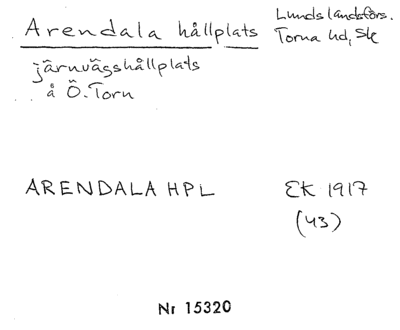 Arendala hållplats
Lunds landsförs.
Torna hd, Sk
järnvägshållplats
å Ö. Torn
ARENDALA HPL
EK 1917
(43)
Nr 15320